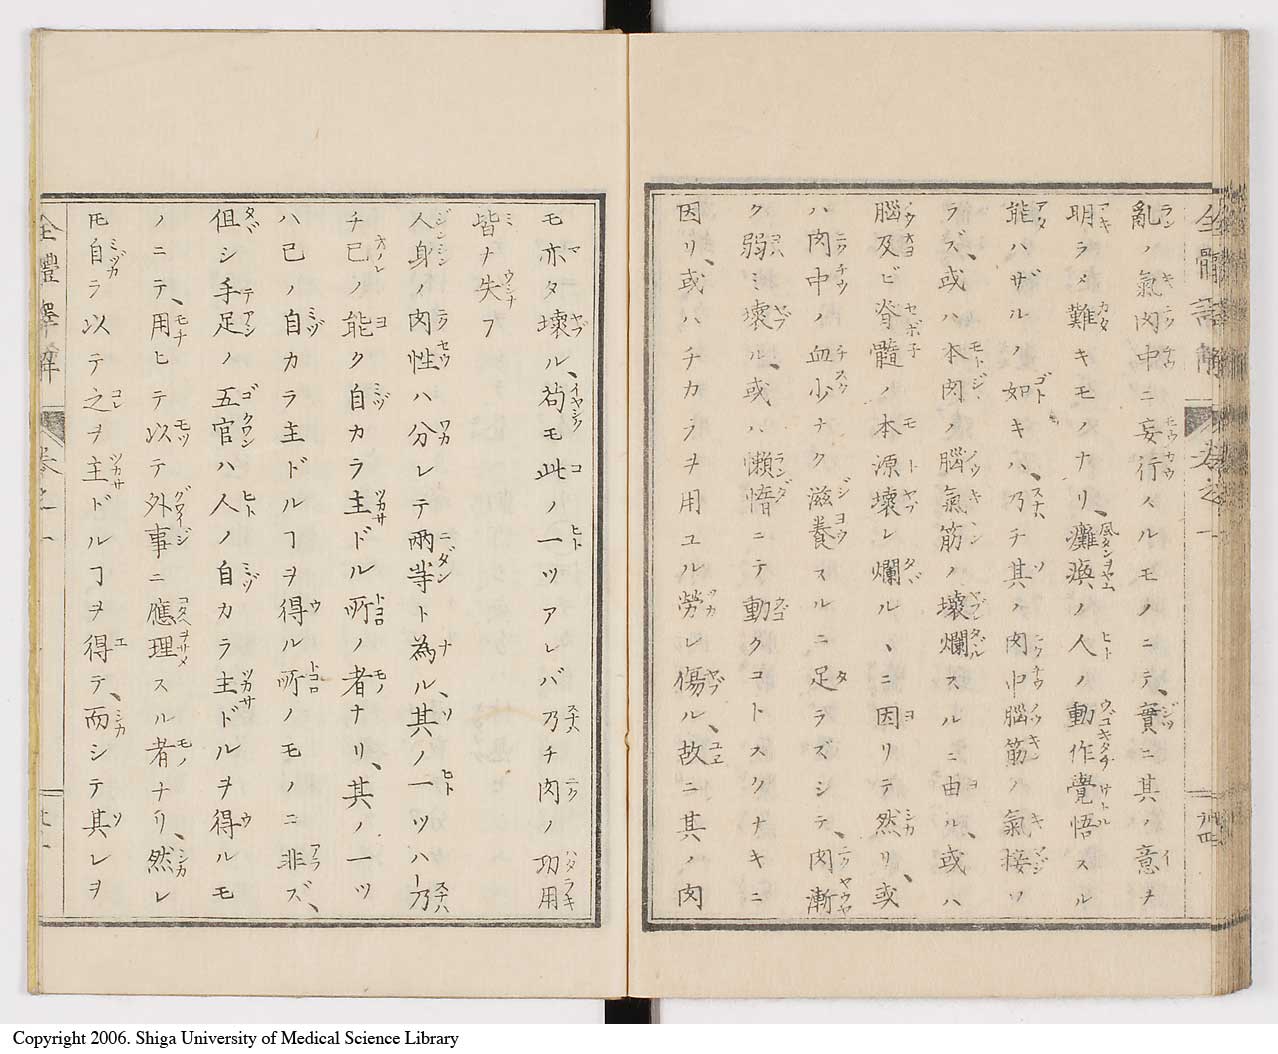 亂ノ氣肉中ニ妄行スルモノニテ、實ニ其ノ意ヲ
明ラメ難キモノナリ、癱瘓ノ人ノ動作覺悟スル
能ハザルノ如キハ、乃チ其ノ肉中腦筋ノ氣接ツ
ラズ、或ハ本肉ノ腦氣筋ノ壞爛スルニ由ル、或ハ
腦及ビ脊髓ノ本源壞レ爛ル、ニ因リテ然リ、或
ハ肉中ノ血少ナク滋養スルニ足ラズシテ、肉漸
ク弱ミ壞ル、或ハ懶惰ニテ動クコトスクナキニ
因リ、或ハチカラヲ用ユル勞レ傷ル、故ニ其ノ肉
モ亦タ壞ル、苟モ此ノ一ツアレバ乃チ肉ノ功用
皆ナ失フ
人身ノ肉性ハ分レテ兩等ト為ル、其ノ一ツハ乃
チ已ノ能ク自カラ主ドル所ノ者ナリ、其ノ一ツ
ハ已ノ自カラ主ドルヿヲ得ル所ノモノニ非ズ、
但シ手足ノ五官ハ人ノ自カラ主ドルヲ得ルモ
ノニテ、用ヒテ以テ外事ニ應理スル者ナリ、然レ
𪜈自ラ以テ之ヲ主ドルヿヲ得テ、而シテ其レヲ
全體譯解
卷之一
Copyright 2006. Shiga University of Medical Science Library